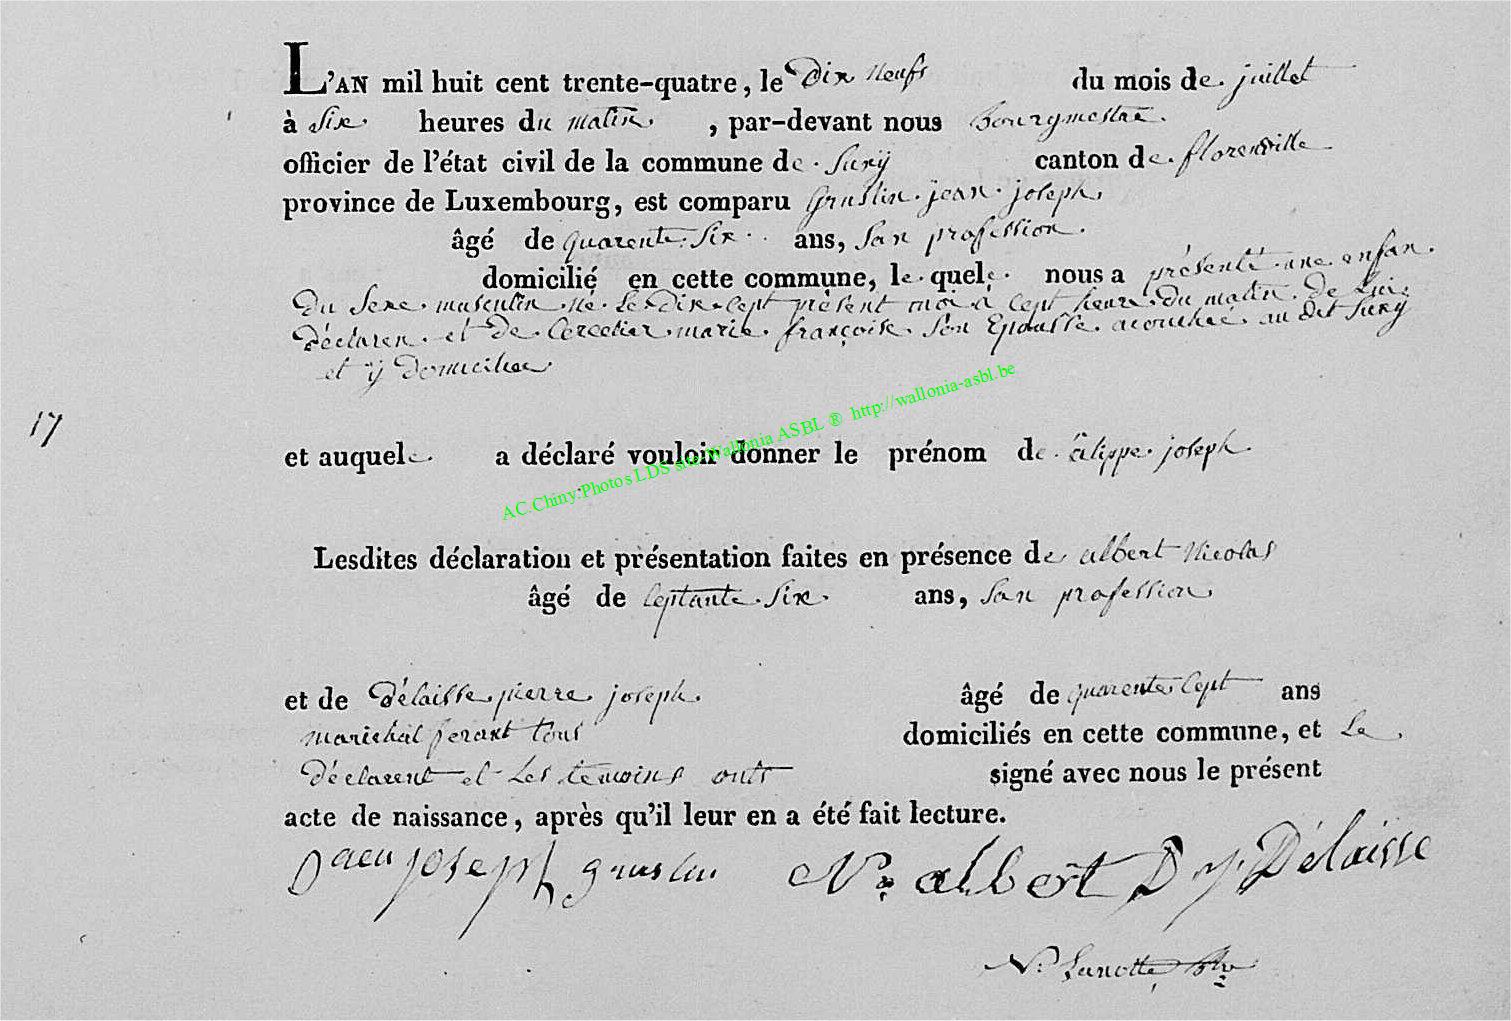 L'AN mil huit cent trente-quatre, le Dix Neufs du mois de juillet
à Six heures du matin, par-devant nous Bourgmestre
officier de l'état civil de la commune de Suxÿ canton de florenville
province de Luxembourg, est comparu Gruslin jean joseph
âgé de quarente Six ans, San profession
domicilié en cette commune, le quel nous a présenté une enfan
Du Sexe masculin né Le Dix Sept présent moi a Sept heure du matin De Lui
Déclaren et De marie françoise Son Epousse acouchéé au dit Suxÿ
et ÿ Domiciliee
17
et auquel a déclaré vouloir donner le prénom de filippe joseph
AC.Chiny.Photos LDS site Wallonia ASBL ® http://wallonia-asbl.be
Lesdites déclaration et présentation faites en présence de albert Nicolas
âgé de Septante Six ans, San profession
et de Délaisse pierre joseph âgé de quarente Sept ans
marichal ferant tous domiciliés en cette commune, et Le
Déclarent et Les temoins onts signé avec nous le présent
acte de naissance, après qu'il leur en a été fait lecture.
joseph gruslin N. albert Délaisse
N. Lanotte